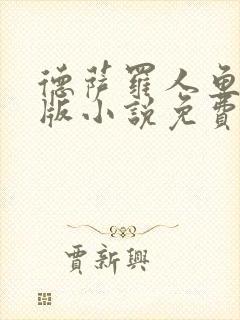 德薩羅人魚
版小說免費
賈新興